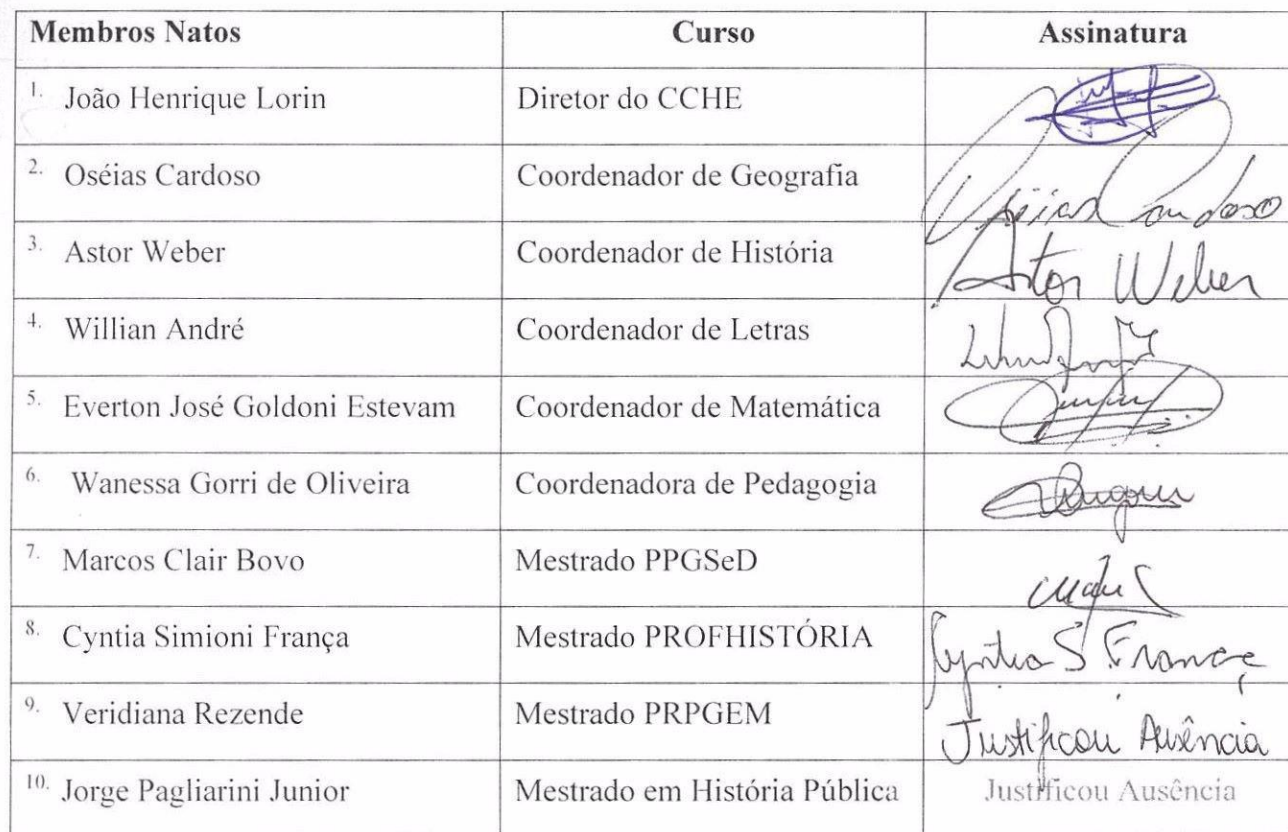 Membros Natos Curso Assinatura
1. João Henrique Lorin Diretor do CCHE
2. Oséias Cardoso Coordenador de Geografia Oséias Cardoso
3. Astor Weber Coordenador de História Astor Weber
4. Willian André Coordenador de Letras
5. Everton José Goldoni Estevam Coordenador de Matemática
6. Wanessa Gorri de Oliveira Coordenadora de Pedagogia
7. Marcos Clair Bovo Mestrado PPGSeD
8. Cyntia Simioni França Mestrado PROFHISTÓRIA Cyntia S França
9. Veridiana Rezende Mestrado PRPGEM Justificou Ausência
10. Jorge Pagliarini Junior Mestrado em História Pública Justificou Ausência